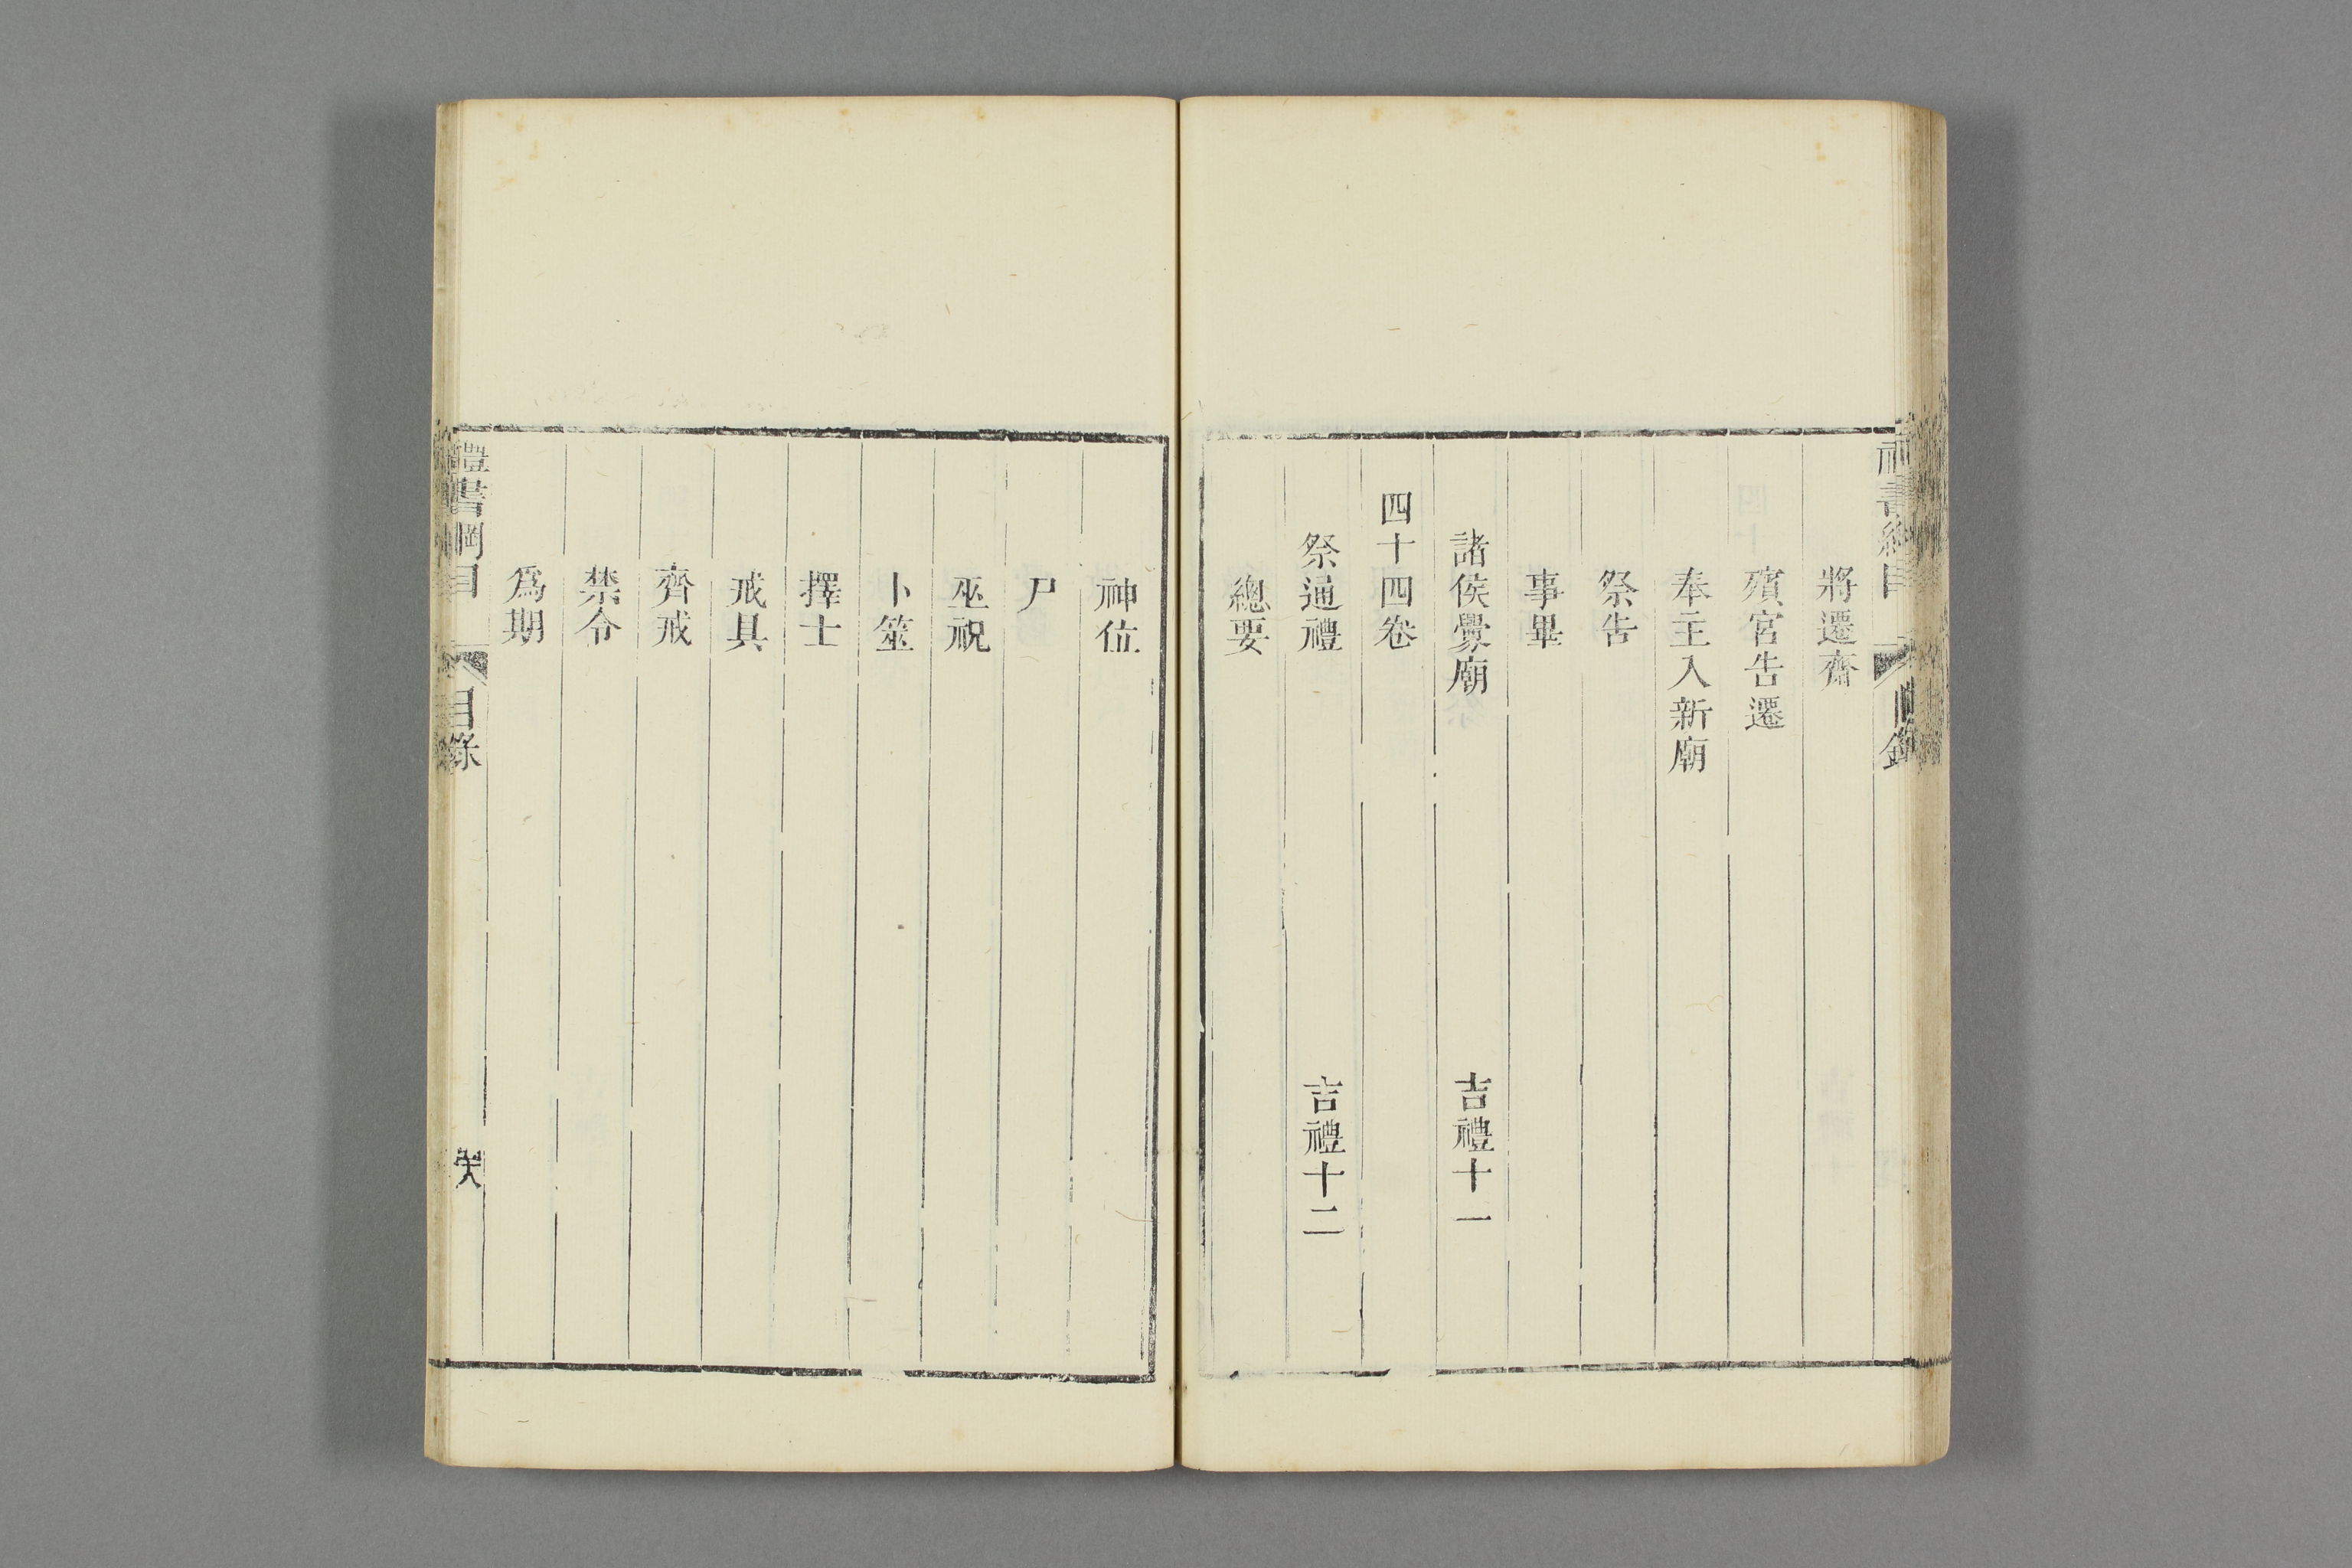 將遷齋
殯宮告遷
奉主入新廟
祭告
事畢
諸侯釁廟 吉禮十一
四十四卷
祭通禮 吉禮十二
總要
神位
尸
巫祝
卜筮
擇士
戒具
齊戒
禁令
爲期
禮書綱目 目錄